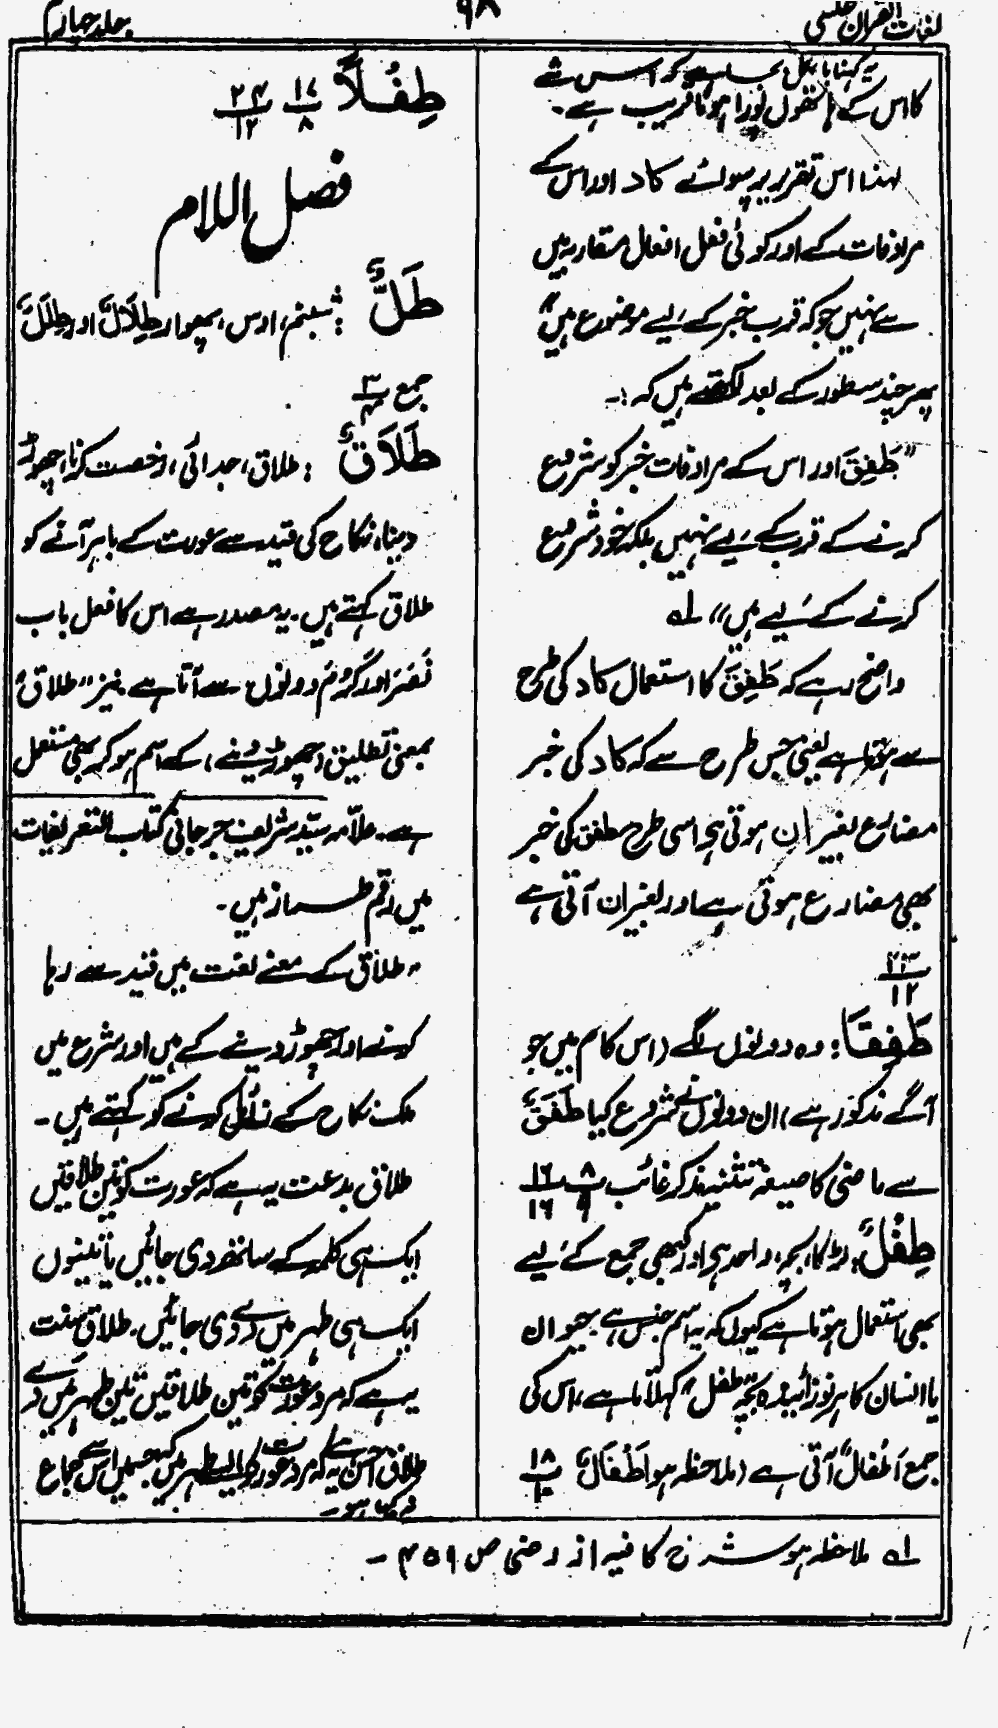 لغات القرآن جلسی
۹۸
جلد چہارم
یہ کہنا بالکل کر اس شے
کا اس کے ہونا قریب ہے۔
لہٰذا اس تقریر پر سوائے کاد اور اس کے
مرادفات کے اور کوئی فعل افعال مقاربہ میں
سے نہیں جو کہ قرب خبر کے لیے موضوع ہیں"
پھر چند سطور کے بعد لکھتے ہیں کہ :۔
"طَفِقَ اور اس کے مرادفات خبر کو شروع
کرنے کے قرب کے لیے نہیں بلکہ خود شروع
کرنے کے لیے ہیں" لہ
واضح رہے کہ طَفِقَ کا استعمال کاد کی طرح
سے ہوتا ہے یعنی جس طرح سے کہ کاد کی خبر
مضارع بغیر ان ہوتی ہے اسی طرح طفق کی خبر
بھی مضارع ہوتی ہے اور بغیر ان آتی ہے
۲۳
۱۲
طَفِقَا: وہ دونوں لگے (اس کام میں جو
آگے مذکور ہے) ان دونوں نے شروع کیا طَفَقَ
سے ماضی کا صیغہ تثنیہ مذکر غائب ۸ ۱۶
۹ ۱۶
طِفْلٌ: لڑکا، بچہ، واحد ہی اور کبھی جمع کے لیے
بھی استعمال ہوتا ہے کیوں کہ یہ اسم جنس ہے حیوان
یا انسان کا ہر نوزائیدہ بچہ "طفل" کہلاتا ہے، اس کی
جمع اَطْفَالٌ آتی ہے (ملاحظہ ہو اَطْفَالٌ) ۱۸
۱۰
طِفْلًا ۱۷ ۲۴
۸ ۱۲
فصل اللام
طَلٌّ : شبنم، اوس، پھوار طِلَالٌ اور طِلَلٌ
جمع ۳
۴
طَلَاقٌ : طلاق، جدائی، رخصت کرنا، چھوڑ
دینا، نکاح کی قید سے عورت کے باہر آنے کو
طلاق کہتے ہیں۔ یہ مصدر ہے اس کا فعل باب
نَصَرَ اور کَرُمَ دونوں سے آتا ہے نیز "طلاق"
بمعنی تطلیق (چھوڑ دینے) کے اسم ہو کر بھی مستعمل
ہے۔ علامہ سید شریف جرجانی کتاب التعریفات
میں رقم طراز ہیں۔
"طلاق کے معنے لغت میں قید سے رہا
کرنے اور چھوڑ دینے کے ہیں اور شرع میں
ملک نکاح کے زائل کرنے کو کہتے ہیں۔
طلاق بدعت یہ ہے کہ عورت کو تین طلاقیں
ایک ہی کلمہ کے ساتھ دی جائیں یا تینوں
ایک ہی طہر میں دے دی جائیں۔ طلاق سنت
یہ ہے کہ مرد عورت کو تین طلاقیں تین طہر میں دے
طلاق احسن یہ ہے کہ مرد عورت کو ایسے طہر میں کہ جس میں اس سے جماع
نہ کیا ہو۔
لہ ملاحظہ ہو شرح کافیہ از رضی ص ۴۵۹ ۔